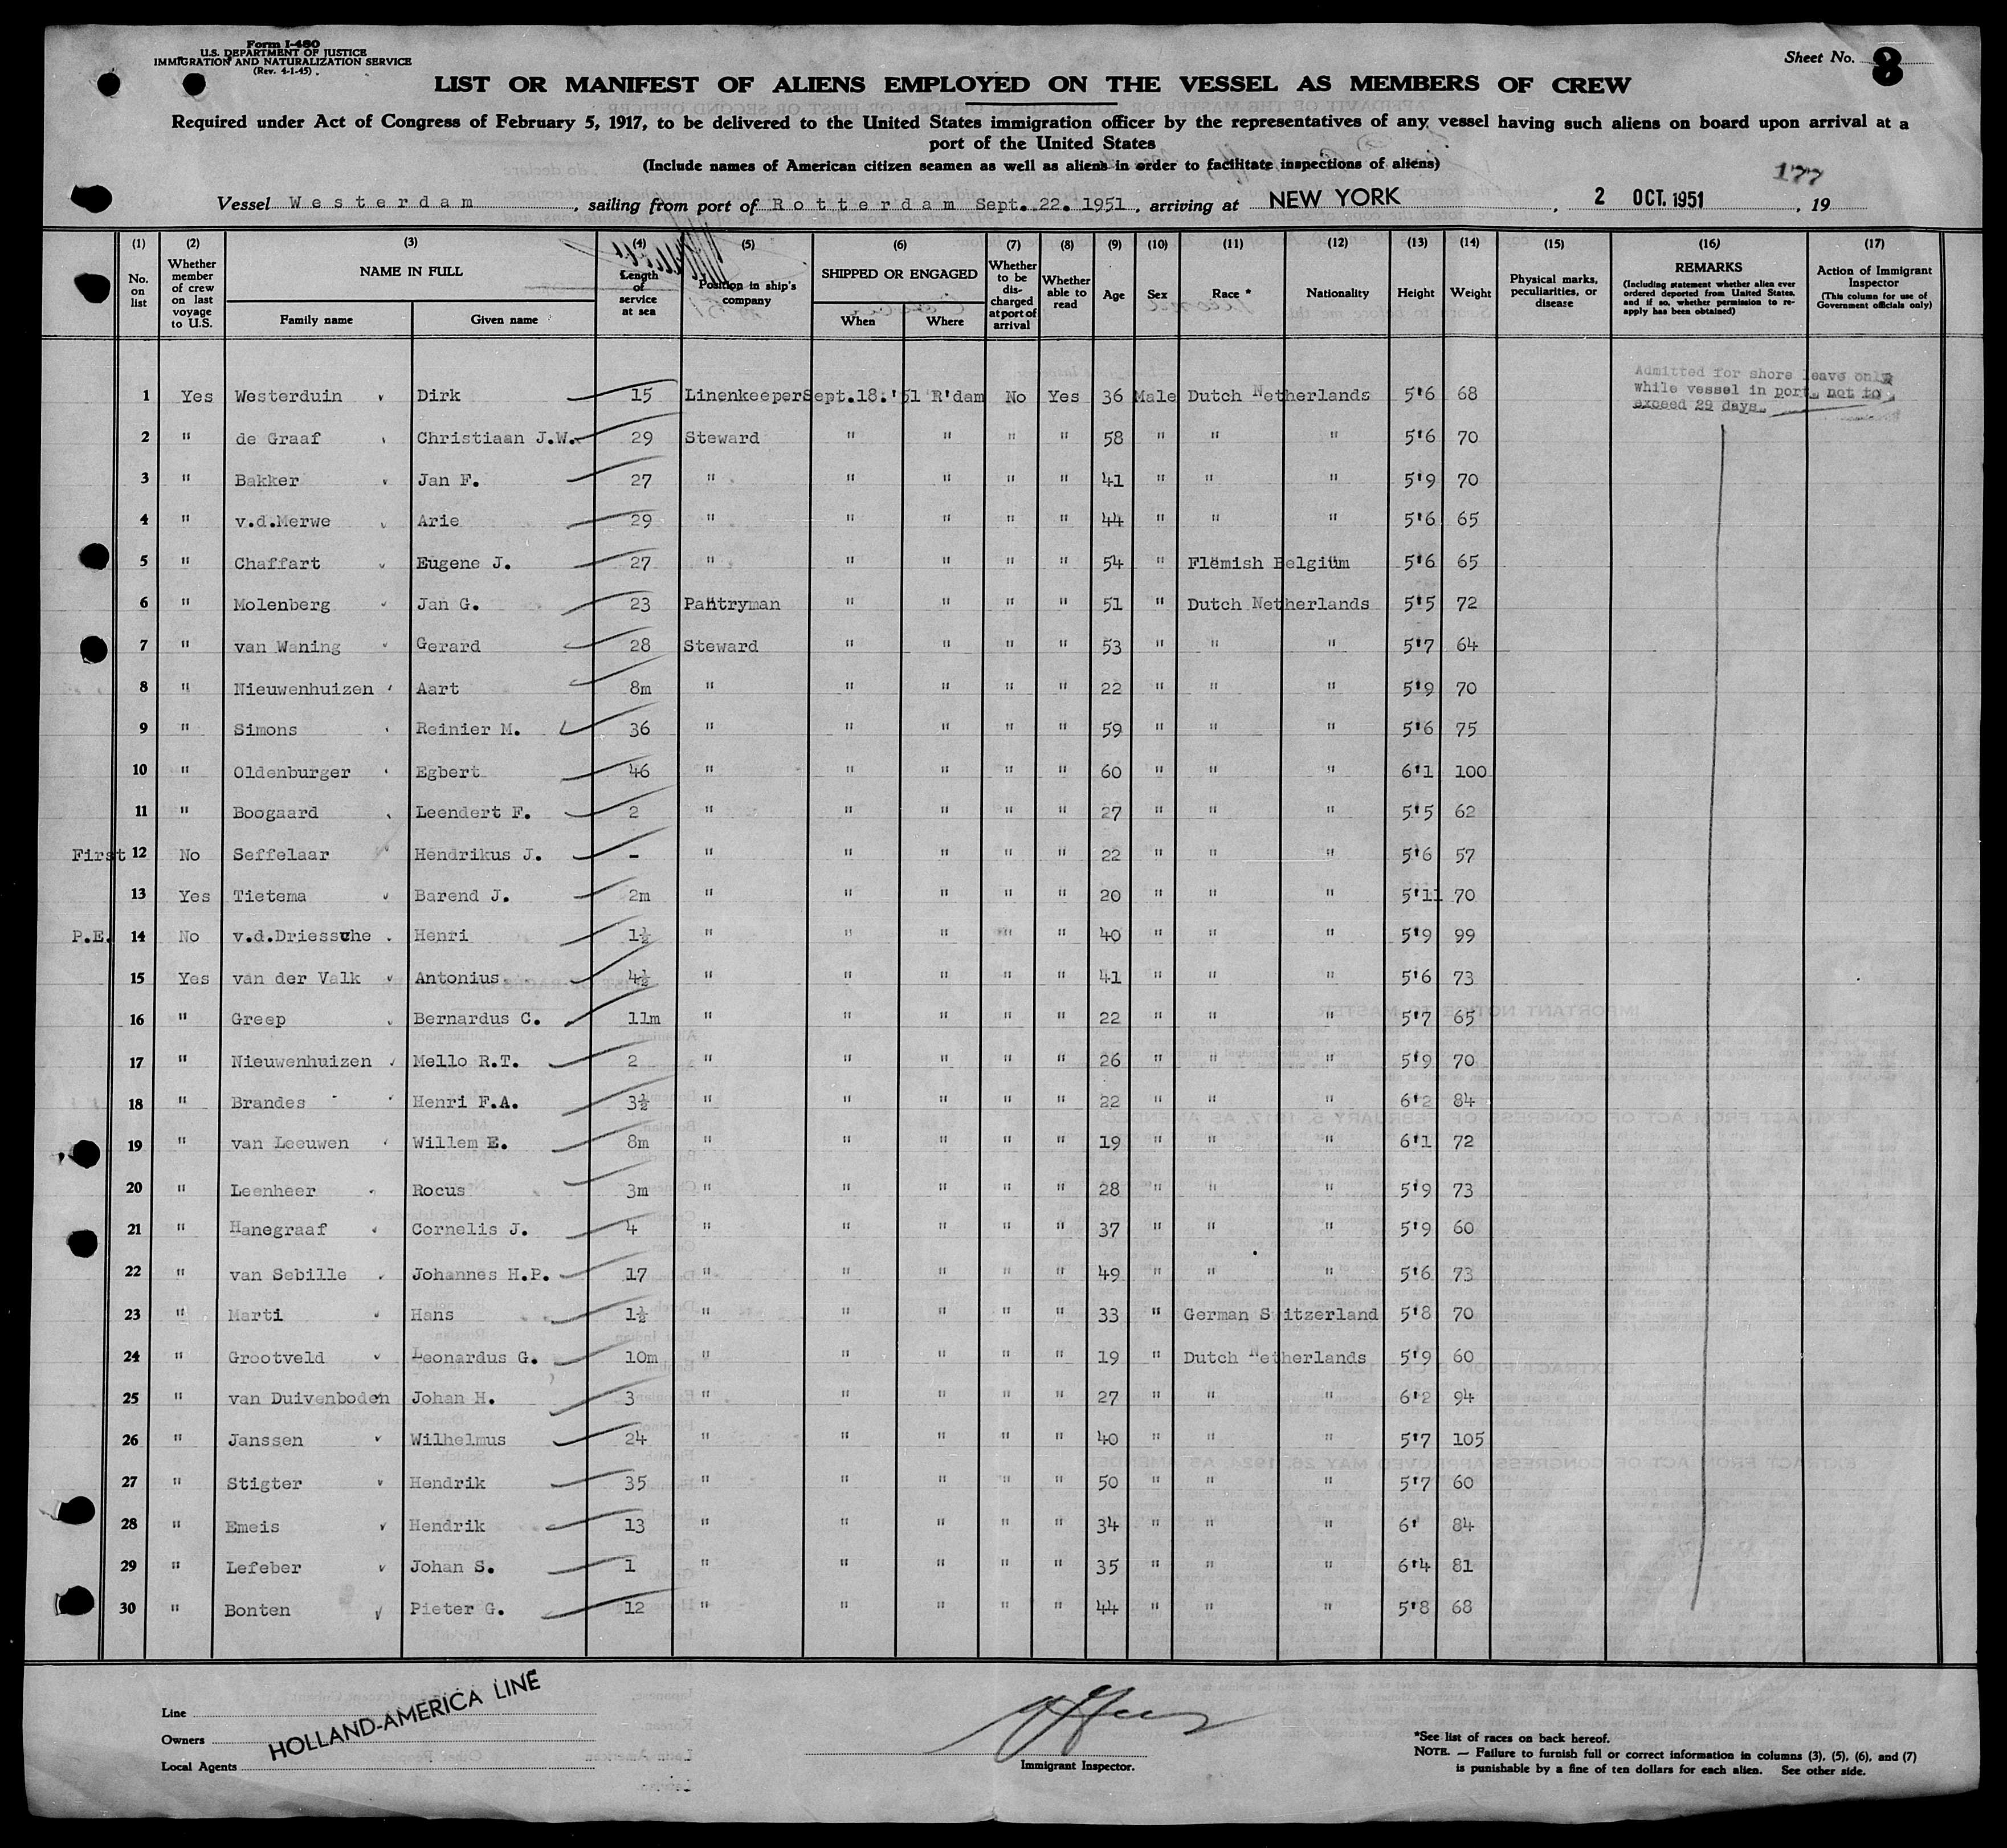 Form I-480
U.S. DEPARTMENT OF JUSTICE
IMMIGRATION AND NATURALIZATION SERVICE
(Rev. 4-1-45)
Sheet No. 8
LIST OR MANIFEST OF ALIENS EMPLOYED ON THE VESSEL AS MEMBERS OF CREW
Required under Act of Congress of February 5, 1917, to be delivered to the United States immigration officer by the representatives of any vessel having such aliens on board upon arrival at a
port of the United States
(Include names of American citizen seamen as well as aliens in order to facilitate inspections of aliens)
177
Vessel Westerdam, sailing from port of Rotterdam Sept. 22. 1951, arriving at NEW YORK, 2 OCT. 1951, 19
(1) (2) (3) (4) (5) (6) (7) (8) (9) (10) (11) (12) (13) (14) (15) (16) (17)
No. on list
Whether member of crew on last voyage to U.S.
NAME IN FULL
Family name
Given name
Length of service at sea
Position in ship's company
SHIPPED OR ENGAGED
When
Where
Whether to be discharged at port of arrival
Whether able to read
Age
Sex
Race *
Nationality
Height
Weight
Physical marks, peculiarities, or disease
REMARKS
(Including statement whether alien ever ordered deported from United States, and if so, whether permission to reapply has been obtained)
Action of Immigrant Inspector
(This column for use of Government officials only)
Admitted for shore leave only
while vessel in port, not to
exceed 29 days.
1 Yes Westerduin Dirk 15 Linenkeeper Sept.18.'51 R'dam No Yes 36 Male Dutch Netherlands 5'6 68
2 " de Graaf Christiaan J.W. 29 Steward " " " " 58 " " " 5'6 70
3 " Bakker Jan F. 27 " " " " " 41 " " " 5'9 70
4 " v.d.Merwe Arie 29 " " " " " 44 " " " 5'6 65
5 " Chaffart Eugene J. 27 " " " " " 54 " Flemish Belgium 5'6 65
6 " Molenberg Jan G. 23 Pantryman " " " " 51 " Dutch Netherlands 5'5 72
7 " van Waning Gerard 28 Steward " " " " 53 " " " 5'7 64
8 " Nieuwenhuizen Aart 8m " " " " " 22 " " " 5'9 70
9 " Simons Reinier M. 36 " " " " " 59 " " " 5'6 75
10 " Oldenburger Egbert 46 " " " " " 60 " " " 6'1 100
11 " Boogaard Leendert F. 2 " " " " " 27 " " " 5'5 62
First 12 No Seffelaar Hendrikus J. - " " " " " 22 " " " 5'6 57
13 Yes Tietema Barend J. 2m " " " " " 20 " " " 5'11 70
P.E. 14 No v.d.Driessche Henri 1½ " " " " " 40 " " " 5'9 99
15 Yes van der Valk Antonius 4½ " " " " " 41 " " " 5'6 73
16 " Greep Bernardus C. 11m " " " " " 22 " " " 5'7 65
17 " Nieuwenhuizen Mello R.T. 2 " " " " " 26 " " " 5'9 70
18 " Brandes Henri F.A. 3½ " " " " " 22 " " " 6'2 84
19 " van Leeuwen Willem E. 8m " " " " " 19 " " " 6'1 72
20 " Leenheer Rocus 3m " " " " " 28 " " " 5'9 73
21 " Hanegraaf Cornelis J. 4 " " " " " 37 " " " 5'9 60
22 " van Sebille Johannes H.P. 17 " " " " " 49 " " " 5'6 73
23 " Marti Hans 1½ " " " " " 33 " German Switzerland 5'8 70
24 " Grootveld Leonardus G. 10m " " " " " 19 " Dutch Netherlands 5'9 60
25 " van Duivenboden Johan H. 3 " " " " " 27 " " " 6'2 94
26 " Janssen Wilhelmus 24 " " " " " 40 " " " 5'7 105
27 " Stigter Hendrik 35 " " " " " 50 " " " 5'7 60
28 " Emeis Hendrik 13 " " " " " 34 " " " 6' 84
29 " Lefeber Johan S. 1 " " " " " 35 " " " 6'4 81
30 " Bonten Pieter G. 12 " " " " " 44 " " " 5'8 68
Line
Owners
Local Agents
HOLLAND-AMERICA LINE
Immigrant Inspector.
*See list of races on back hereof.
NOTE. — Failure to furnish full or correct information in columns (3), (5), (6), and (7)
is punishable by a fine of ten dollars for each alien. See other side.